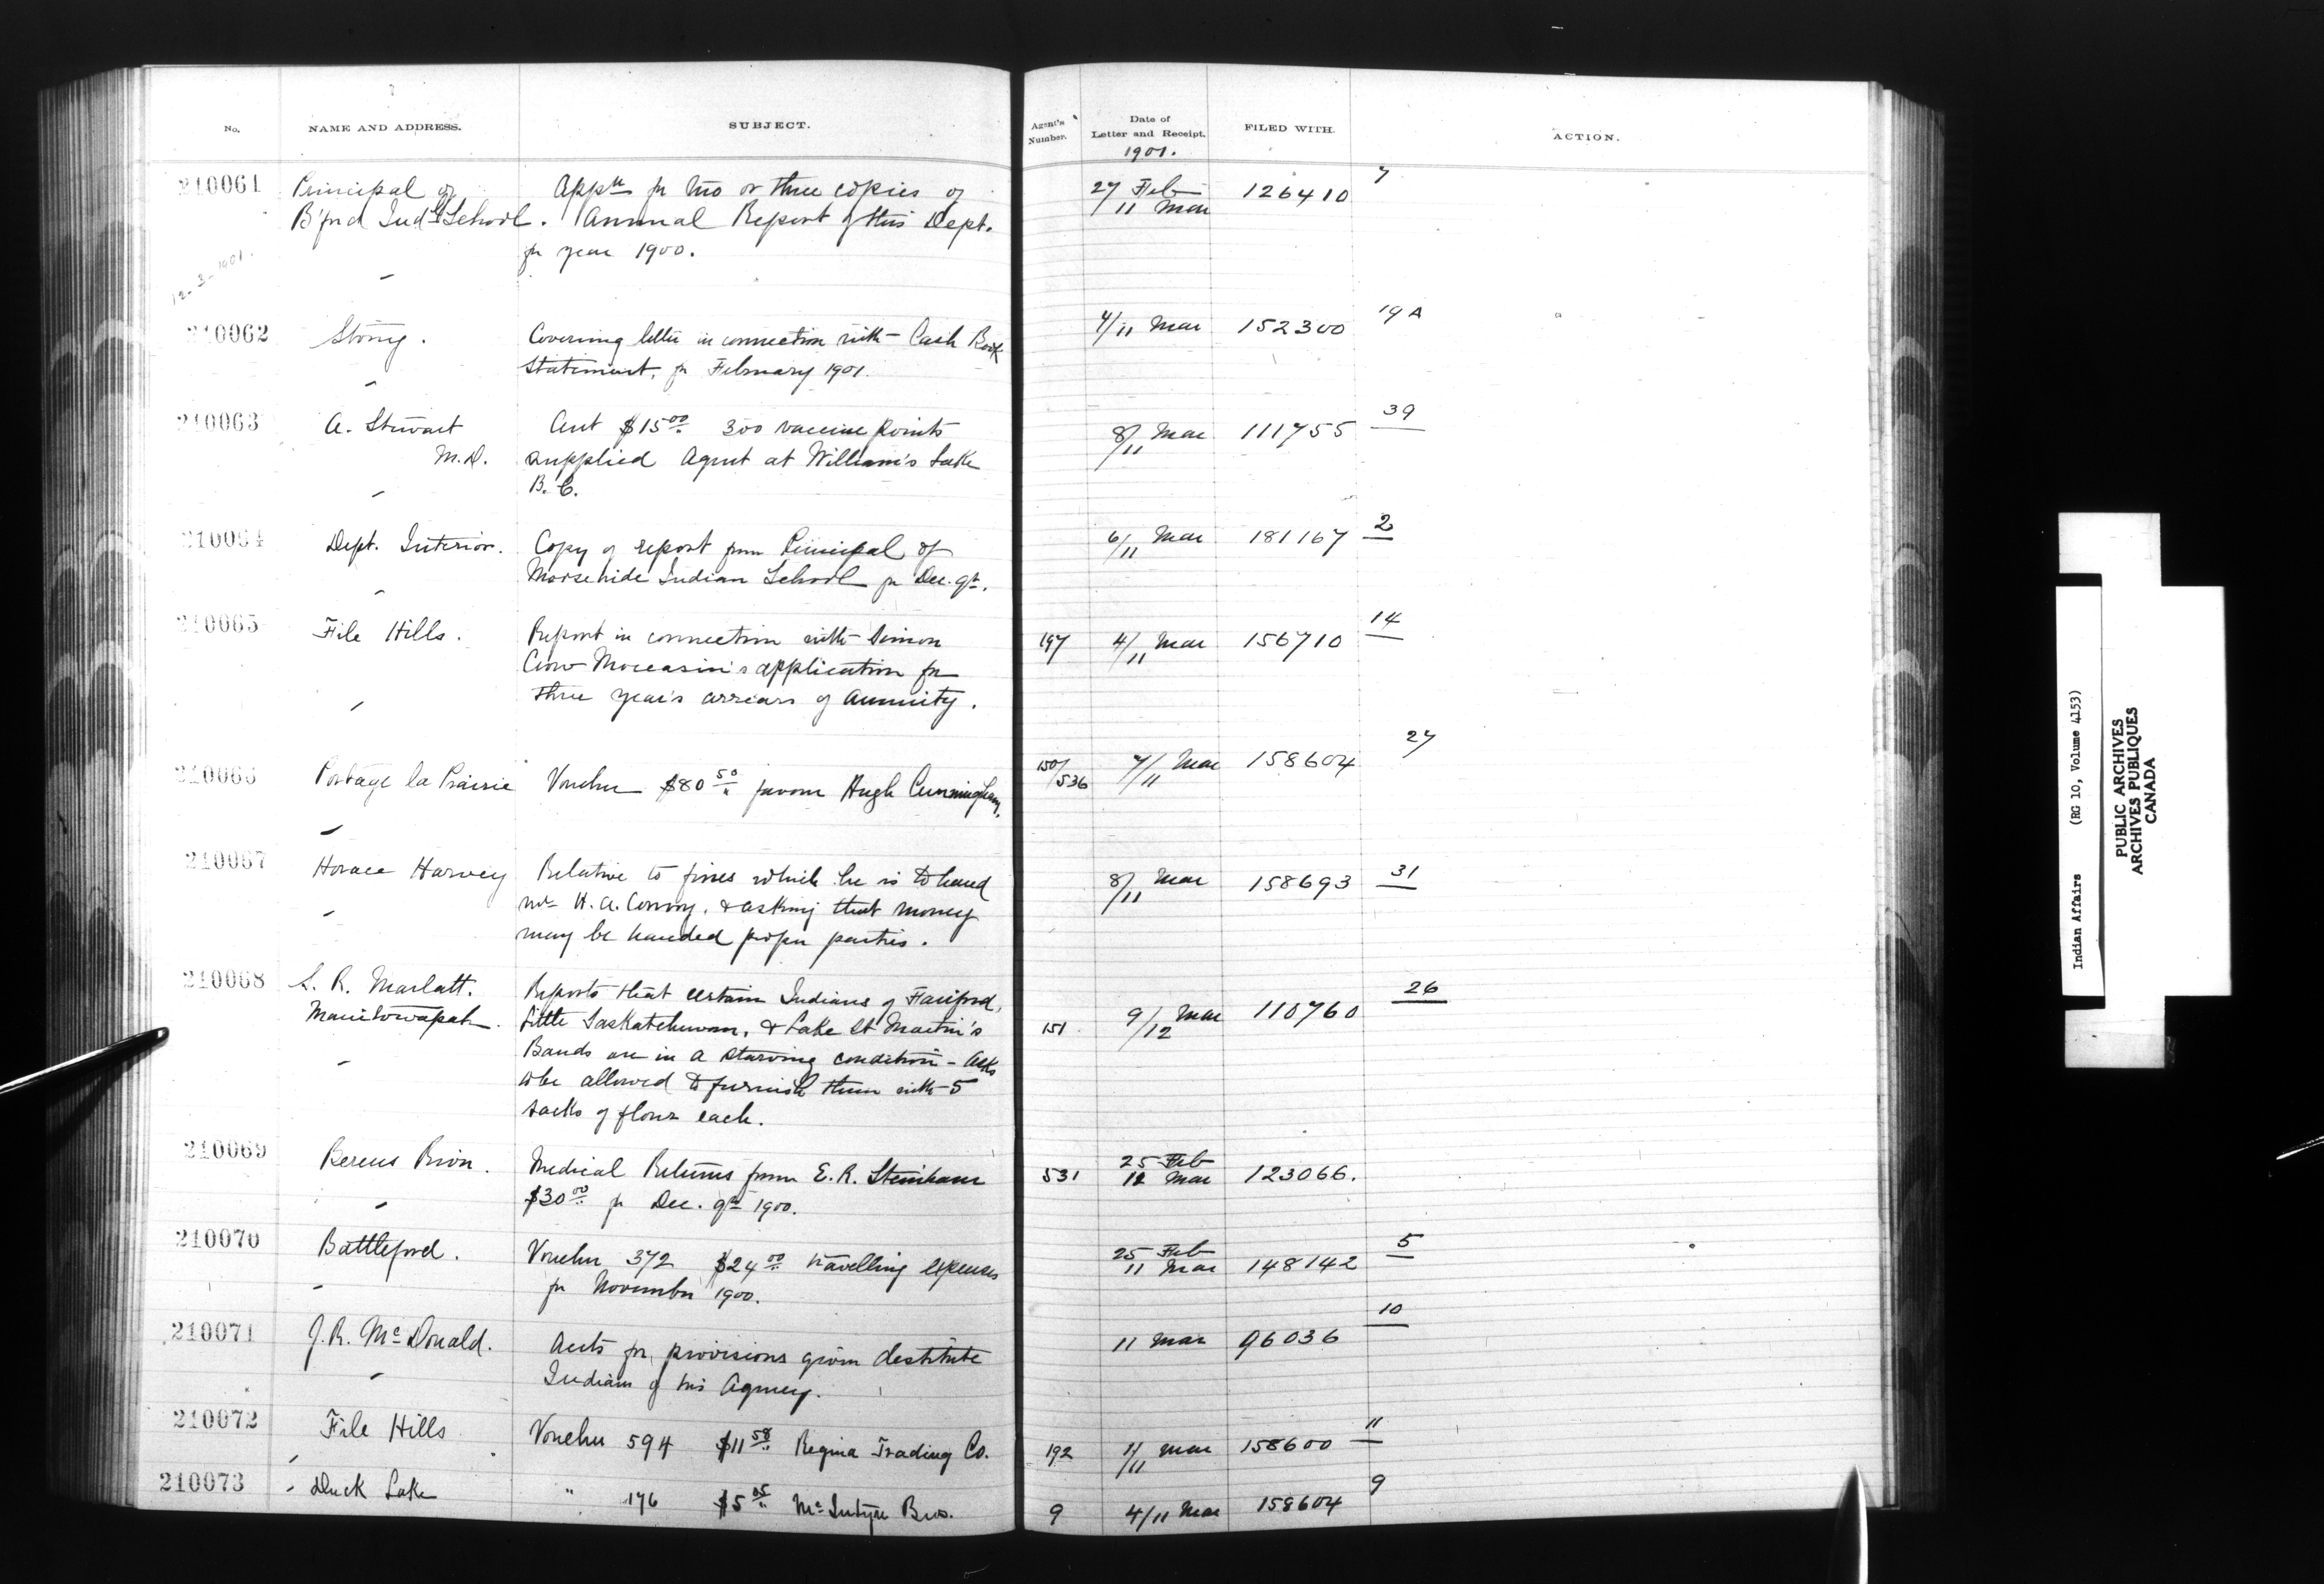 No. NAME AND ADDRESS. SUBJECT. Agent's Number. Date of Letter and Receipt. FILED WITH. ACTION.
1901.
210061 Principal of Appn for two or three copies of 27 Feb 126410 7
B'ford Indl School. Annual Report of this Dept. 11 Mar
for year 1900.
12-3-1901.
210062 Stony. Covering letter in connection with Cash Book 4/11 Mar 152300 19A
Statement, for February 1901.
210063 A. Stewart Acct $15.00 300 vaccine points 8/11 Mar 111755 39
M.D. supplied Agent at William's Lake
B.C.
210064 Dept. Interior. Copy of report from Principal of 6/11 Mar 181167 2
Moosehide Indian School for Dec. qr.
210065 File Hills. Report in connection with Simon 197 4/11 Mar 156710 14
Crow Moccasin's application for
three year's arrears of annuity.
210066 Portage la Prairie Voucher $80.50 favour Hugh Cunningham. 150/536 7/11 Mar 158604 27
210067 Horace Harvey Relative to fines which he is to hand 8/11 Mar 158693 31
Mr H. A. Conroy, & asking that money
may be handed proper parties.
210068 S. R. Marlatt. Reports that certain Indians of Fairford, 151 9/12 Mar 110760 26
Manitowapah. Little Saskatchewan, & Lake St Martin's
Bands are in a starving condition - Asks
to be allowed to furnish them with 5
sacks of flour each.
210069 Berens River. Medical Returns from E. R. Steinhaur 531 25 Feb 12 Mar 123066.
$30.00 for Dec. qr 1900.
210070 Battleford. Voucher 372 $24.00 travelling expenses 25 Feb 11 Mar 148142 5
for November 1900.
210071 J. R. McDonald. Accts for provisions given destitute 11 Mar 96036 10
Indians of his Agency.
210072 File Hills Voucher 594 $11.58 Regina Trading Co. 192 7/11 Mar 158600 11
210073 Duck Lake " 176 $5.05 McIntyre Bros. 9 4/11 Mar 158604 9
Indian Affairs (RG 10, Volume 4153)
PUBLIC ARCHIVES
ARCHIVES PUBLIQUES
CANADA